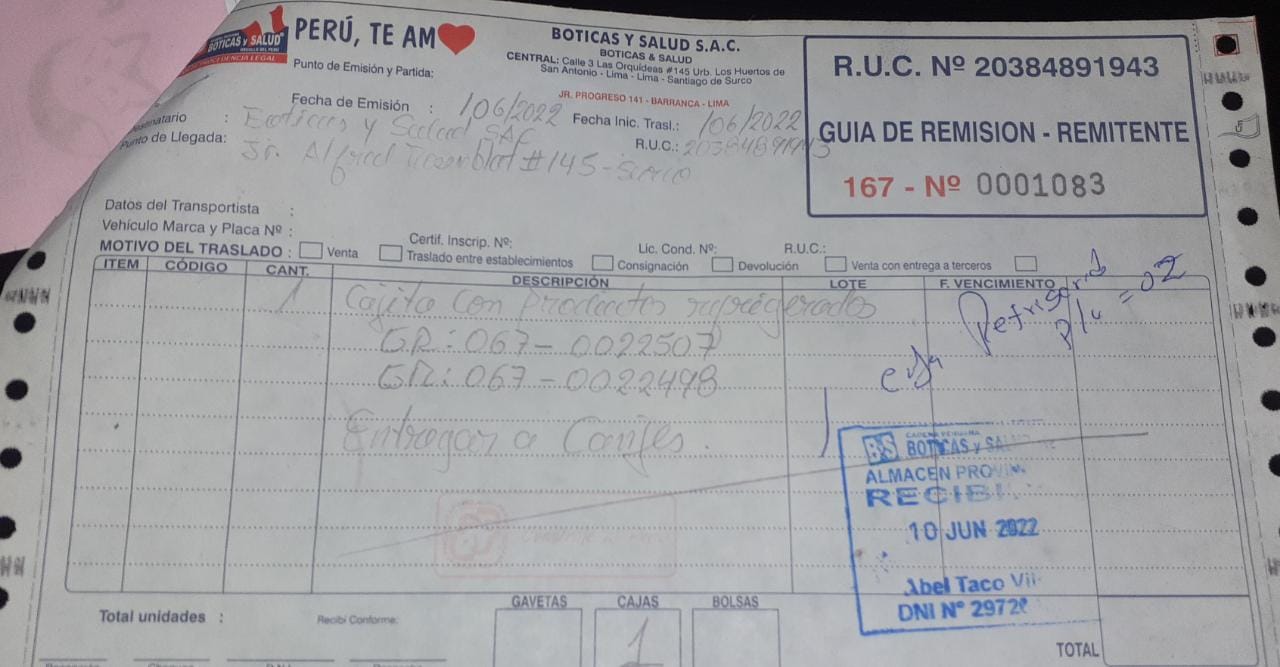 BOTICAS y SALUD
PERÚ, TE AM
BOTICAS Y SALUD S.A.C.
BOTICAS & SALUD
CENTRAL: Calle 3 Las Orquídeas #145 Urb. Los Huertos de
San Antonio - Lima - Lima - Santiago de Surco
JR. PROGRESO 141 - BARRANCA - LIMA
R.U.C. Nº 20384891943
GUIA DE REMISION - REMITENTE
167 - Nº 0001083
Punto de Emisión y Partida:
Fecha de Emisión : /06/2022 Fecha Inic. Trasl.: /06/2022
: Boticas y Salud SAC R.U.C.: 20384891943
Punto de Llegada: Jr. Alfred #145 - Surco
Datos del Transportista :
Vehículo Marca y Placa Nº : Certif. Inscrip. Nº: Lic. Cond. Nº: R.U.C.:
MOTIVO DEL TRASLADO : Venta Traslado entre establecimientos Consignación Devolución Venta con entrega a terceros
ITEM CÓDIGO CANT. DESCRIPCIÓN LOTE F. VENCIMIENTO
1 Cajita con Productos refrigerados
G.R.: 067-0022507
G.R.: 067-0022498
Entregar a Canjes.
= 02
BS BOTICAS y
ALMACEN
10 JUN 2022
Abel Taco
DNI Nº
Total unidades :
Recibí Conforme:
GAVETAS CAJAS BOLSAS
1
TOTAL